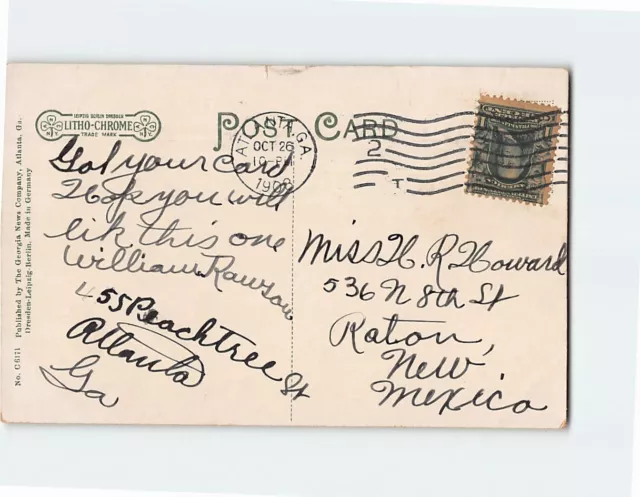 LEIPZIG BERLIN DRESDEN
LITHO-CHROME
TRADE MARK
POST CARD
ATLANTA, GA.
OCT 26
10-PM
2
T
Got your card
Hope you will
lik this one
William Rawson
455 Peachtree St
Atlanta
Ga
Miss H. R. Howard
536 N 8th St
Raton,
New
Mexico
No. C6171 Published by The Georgia News Company, Atlanta, Ga.
Dresden-Leipzig-Berlin. Made in Germany